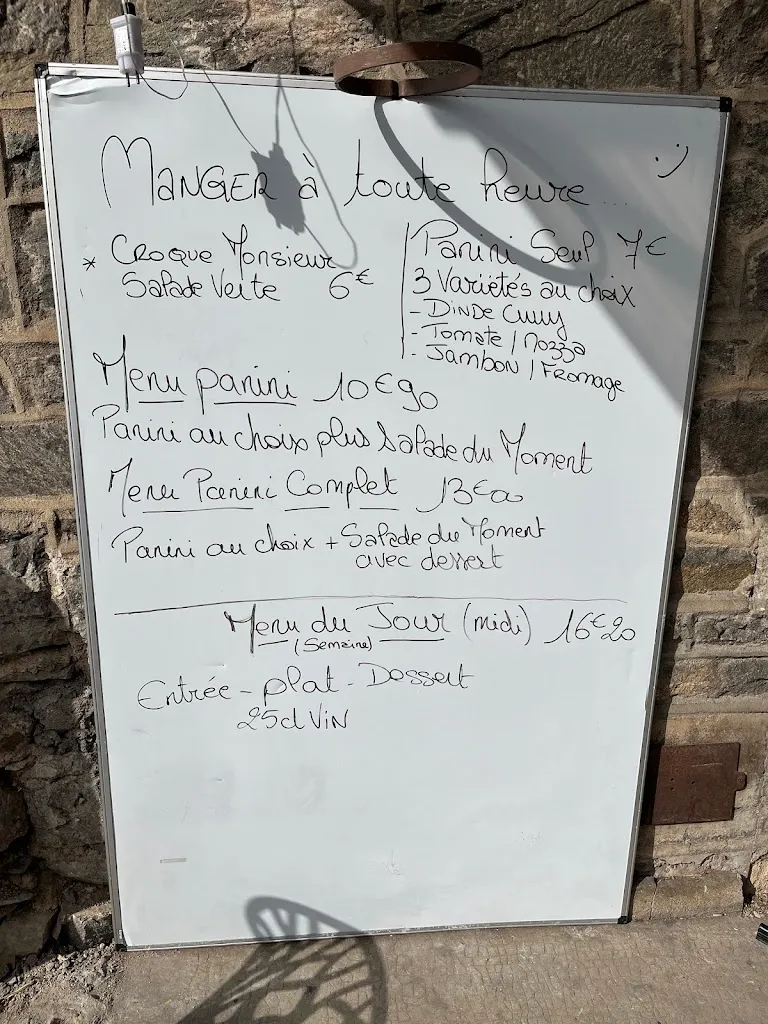 MANGER à toute heure... :)
* CROQUE Monsieur
Salade Verte 6€
Panini Seul 7€
3 Variétés au choix
- DINDE Curry
- Tomate / Mozza
- JAMBON / FROMAGE
Menu panini 10€90
Panini au choix plus Salade du Moment
Menu Panini Complet 13€00
Panini au choix + Salade du Moment
avec dessert
Menu du Jour (midi) 16€20
(Semaine)
Entrée - plat - Dessert
25cl VIN